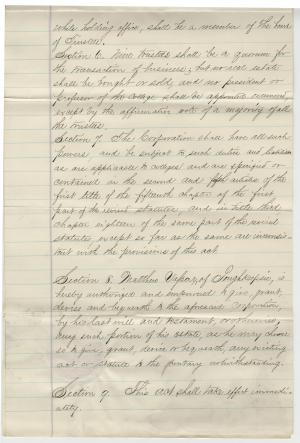 while holding office, shall be a member of the board
of Trustees.
Section 6. Nine trustees shall be a quorum for
the transaction of business; but no real estate
shall be bought or sold, and no president or
professor of the college shall be appointed or removed,
except by the affirmative vote of a majority of all
the trustees.
Section 7. The Corporation shall have all such
powers and be subject to such duties and liabilities
as are applicable to colleges and are specified or
contained in the second and fifth articles of the
first title of the fifteenth chapter of the first
part of the revised statutes, and in title third
chapter eighteen of the same part of the revised
statutes, except so far as the same are inconsis-
tent with the provisions of this act.
Section 8. Matthew Vassar, of Poughkeepsie, is
hereby authorized and empowered to give, grant,
devise and bequeath to the aforesaid Corporation,
by his last will and testament, or otherwise,
any such portion of his estate, as he may choose
so to give, grant, devise or bequeath, any existing
act or statute to the contrary notwithstanding.
Section 9. This act shall take effect immedi-
ately.